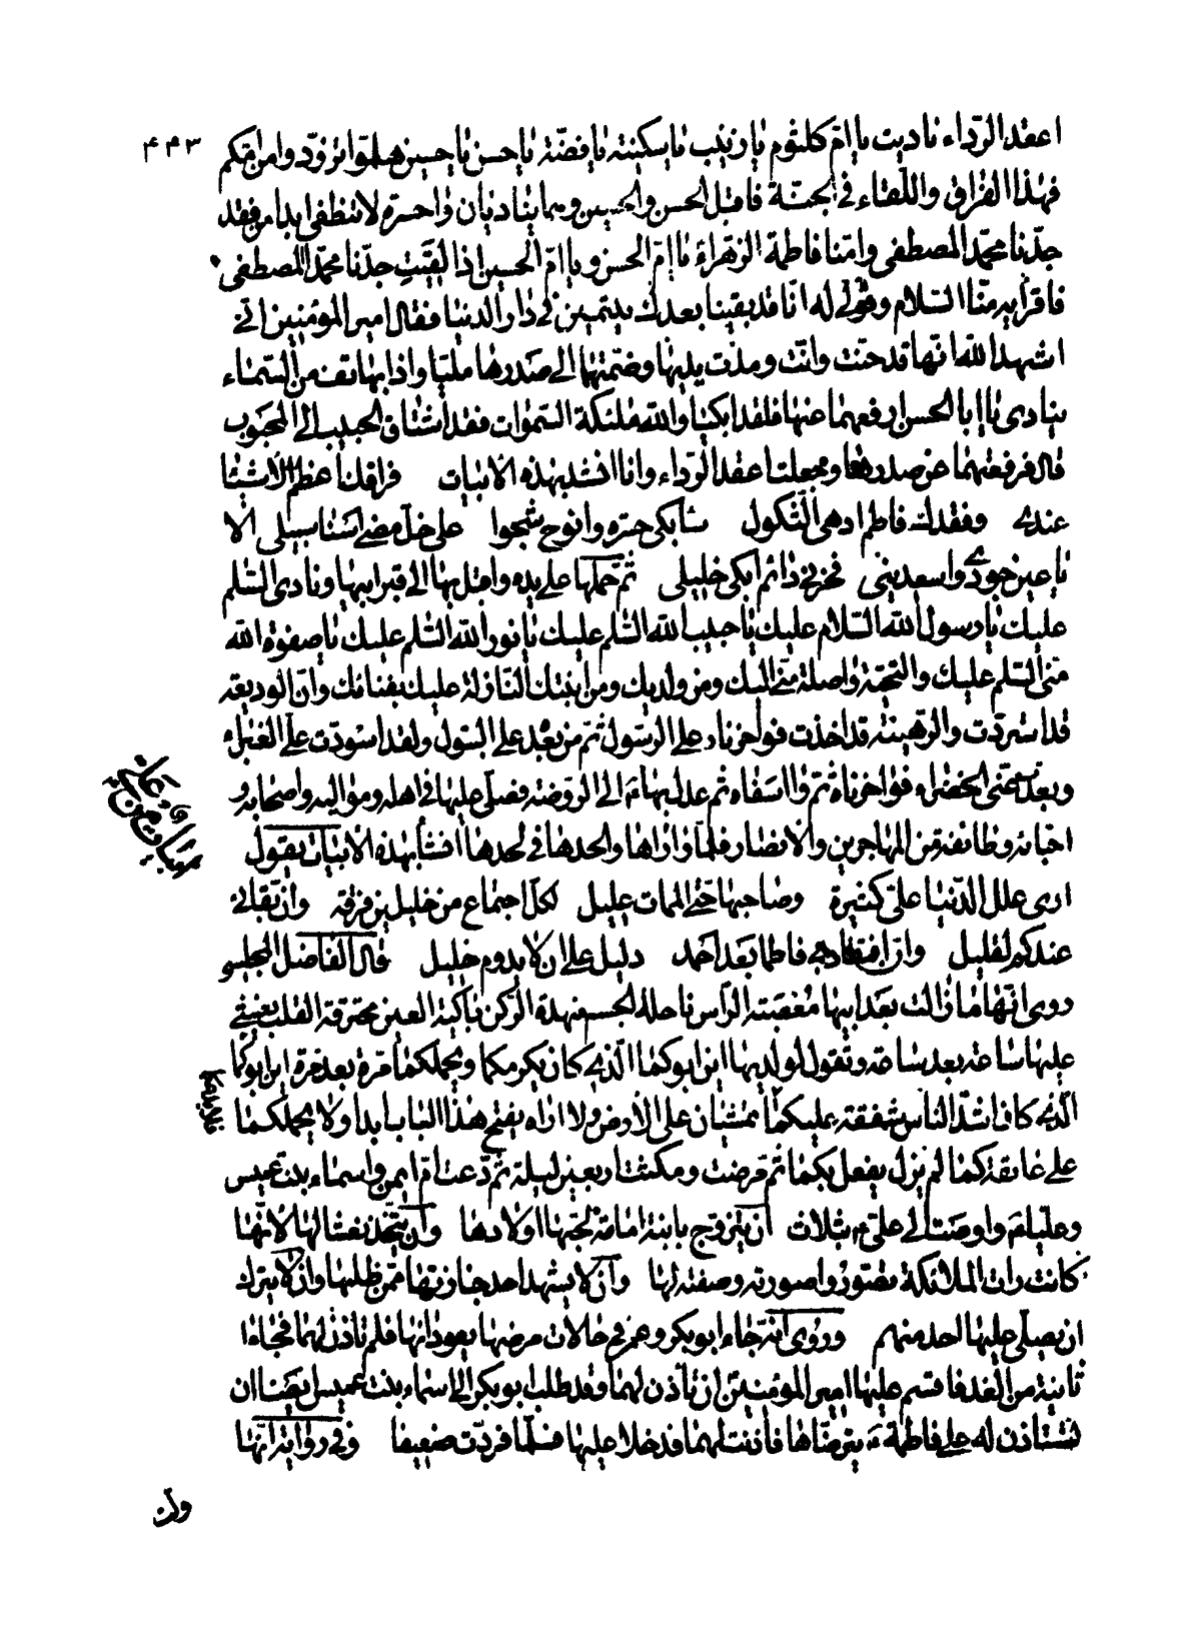 ۴۴۳
اعقد الرّداء ناديت يا امّ كلثوم يا زينب يا سكينة يا فضّة يا حسن يا حسين هلمّوا تزوّدوا من امّكم
فهذا الفراق واللّقاء في الجنّة فاقبل الحسن والحسين وهما يناديان واحسرة لا تنطفي ابدا من فقد
جدّنا محمّد المصطفى وامّنا فاطمة الزهراء يا امّ الحسن ويا امّ الحسين اذا لقيت جدّنا محمّد المصطفى
فاقرئيه منّا السّلام وقولي له انّا قد بقينا بعدك يتيمين في دار الدنيا فقال امير المؤمنين انّي
اشهد الله انّها قد حنّت وانّت ومدّت يديها وضمّتهما الى صدرها مليّا واذا بهاتف من السّماء
ينادي يا ابا الحسن ارفعهما عنها فلقد ابكيا والله ملئكة السّموات فقد اشتاق الحبيب الى المحبوب
قال فرفعتهما عن صدرها وجعلت اعقد الرّداء وانا انشد بهذه الابيات فراقك اعظم الاشيا
عندي وفقدك فاطم ادهى الثّكول سابكي حسرة وانوح شجوا على خلّ مضى اسنا سبيلي الا
يا عين جودي واسعديني فحزني دائم ابكي خليلي ثمّ حملها على يده واقبل بها الى قبر ابيها ونادى السّلم
عليك يا رسول الله السّلام عليك يا حبيب الله السّلم عليك يا نور الله السّلم عليك يا صفوة الله
منّي السّلم عليك والتحيّة واصلة منّي اليك ومن ولديك ومن ابنتك النّازلة عليك بفنائك وانّ الوديعة
قد استردّت والرّهينة قد اخذت فواحزناه على الرّسول ثمّ من بعده على البتول ولقد اسودّت علىّ الغبراء
وبعدت عنّي الخضراء فواحزناه ثمّ وا اسفاه ثمّ عدل بها ع الى الرّوضة فصلّى عليها في اهله ومواليه واصحابه و
احبّائه وطائفة من المهاجرين والانصار فلمّا واراها والحدها في لحدها انشأ بهذه الابيات يقول
ارى علل الدّنيا علىّ كثيرة وصاحبها حتّى الممات عليل لكلّ اجتماع من خليلين فرقة وانّ بقائي
عندكم لقليل وانّ افتقادي فاطما بعد احمد دليل على ان لا يدوم خليل قال الفاضل المجلسي
روي انّها ما زالت بعد ابيها معصّبة الرّأس ناحلة الجسم منهدّة الرّكن باكية العين محترقة القلب يغشى
عليها ساعة بعد ساعة وتقول لولديها اين ابوكما الّذي كان يكرمكما ويحملكما مرّة بعد مرّة اين ابوكما
الّذي كان اشدّ النّاس شفقة عليكما تمشيان على الارض ولا اراه يفتح هذا الباب ابدا ولا يحملكما
على عاتقه كما لم يزل يفعل بكما ثمّ مرضت ومكثت اربعين ليلة ثمّ دعت امّ ايمن واسماء بنت عميس
وعليّا ع واوصت الى علىّ ع بثلاث ان يتزوّج بابنة امامة لحبّها اولادها وان يتّخذ نعشا لها لانّها
كانت رات الملائكة تصوّروا صورته وصفته لها وان لا يشهد احد جنازتها ممّن ظلمها وان لا يترك
ان يصلّي عليها احد منهم وروي انّه جاء ابو بكر وعمر في حالات مرضها يعودانها فلم تاذن لهما فجاءا
ثانية من الغد فاقسم عليها امير المؤمنين ان تاذن لهما وقد طلب ابو بكر الى اسماء بنت عميس ايضا ان
تستاذن له على فاطمة ع يترضّاها فاذنت لهما فدخلا عليها فسلّما فردّت ضعيفا وفي رواية انّها
ولت